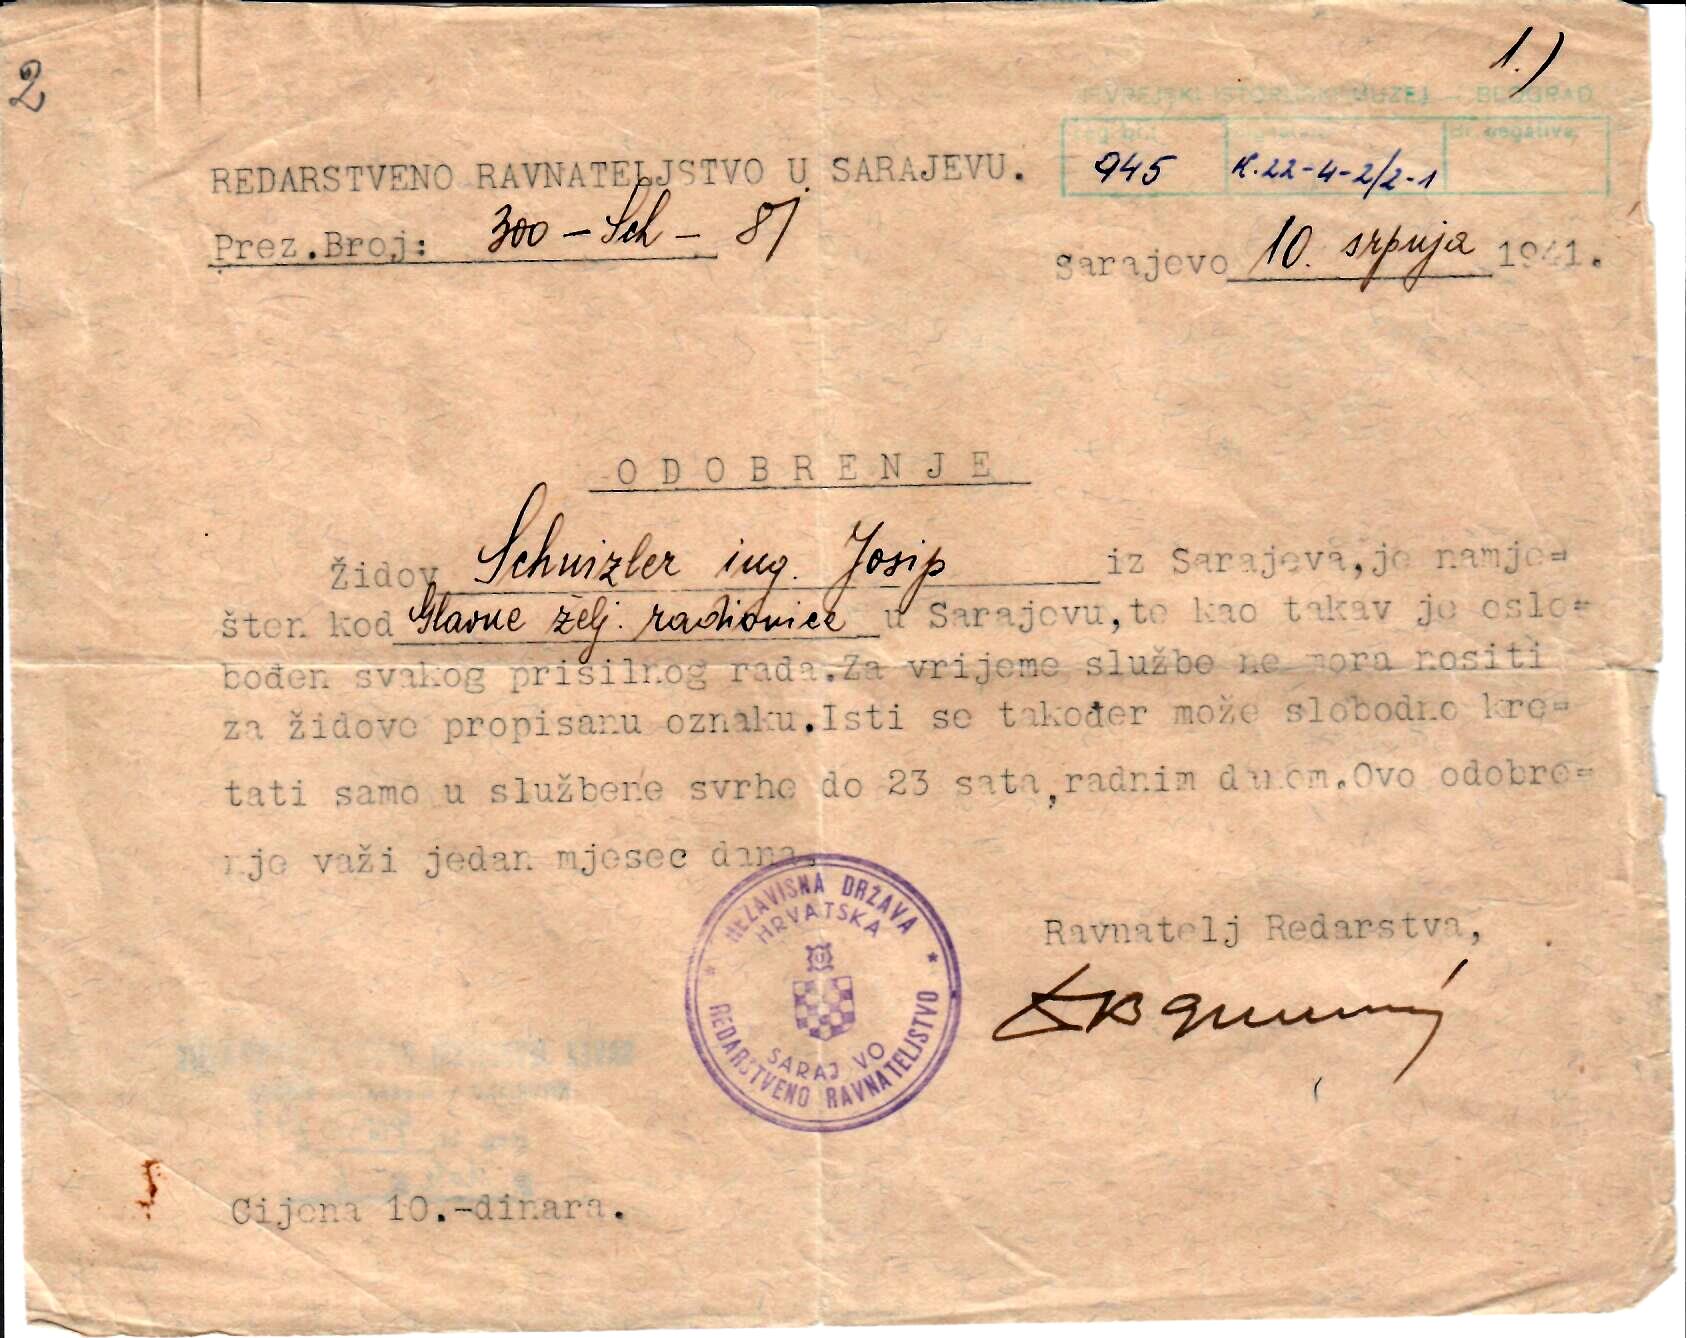 2
1.)
JEVREJSKI ISTORIJSKI MUZEJ — BEOGRAD
Reg. br. Signatura Br. negativa
945 K.22-4-2/2-1
REDARSTVENO RAVNATELJSTVO U SARAJEVU.
Prez.Broj: 300 – Sch – 81
Sarajevo 10. srpnja 1941.
ODOBRENJE
Židov Schnizler ing. Josip iz Sarajeva, je namje=
šten kod Glavne želj. radionice u Sarajevu, te kao takav je oslo=
bođen svakog prisilnog rada. Za vrijeme službe ne mora nositi
za židove propisanu oznaku. Isti se također može slobodno kre=
tati samo u službene svrhe do 23 sata, radnim danom. Ovo odobre=
nje važi jedan mjesec dana.
NEZAVISNA DRŽAVA
HRVATSKA
SARAJ VO
REDARSTVENO RAVNATELJSTVO
Ravnatelj Redarstva,
Cijena 10.-dinara.